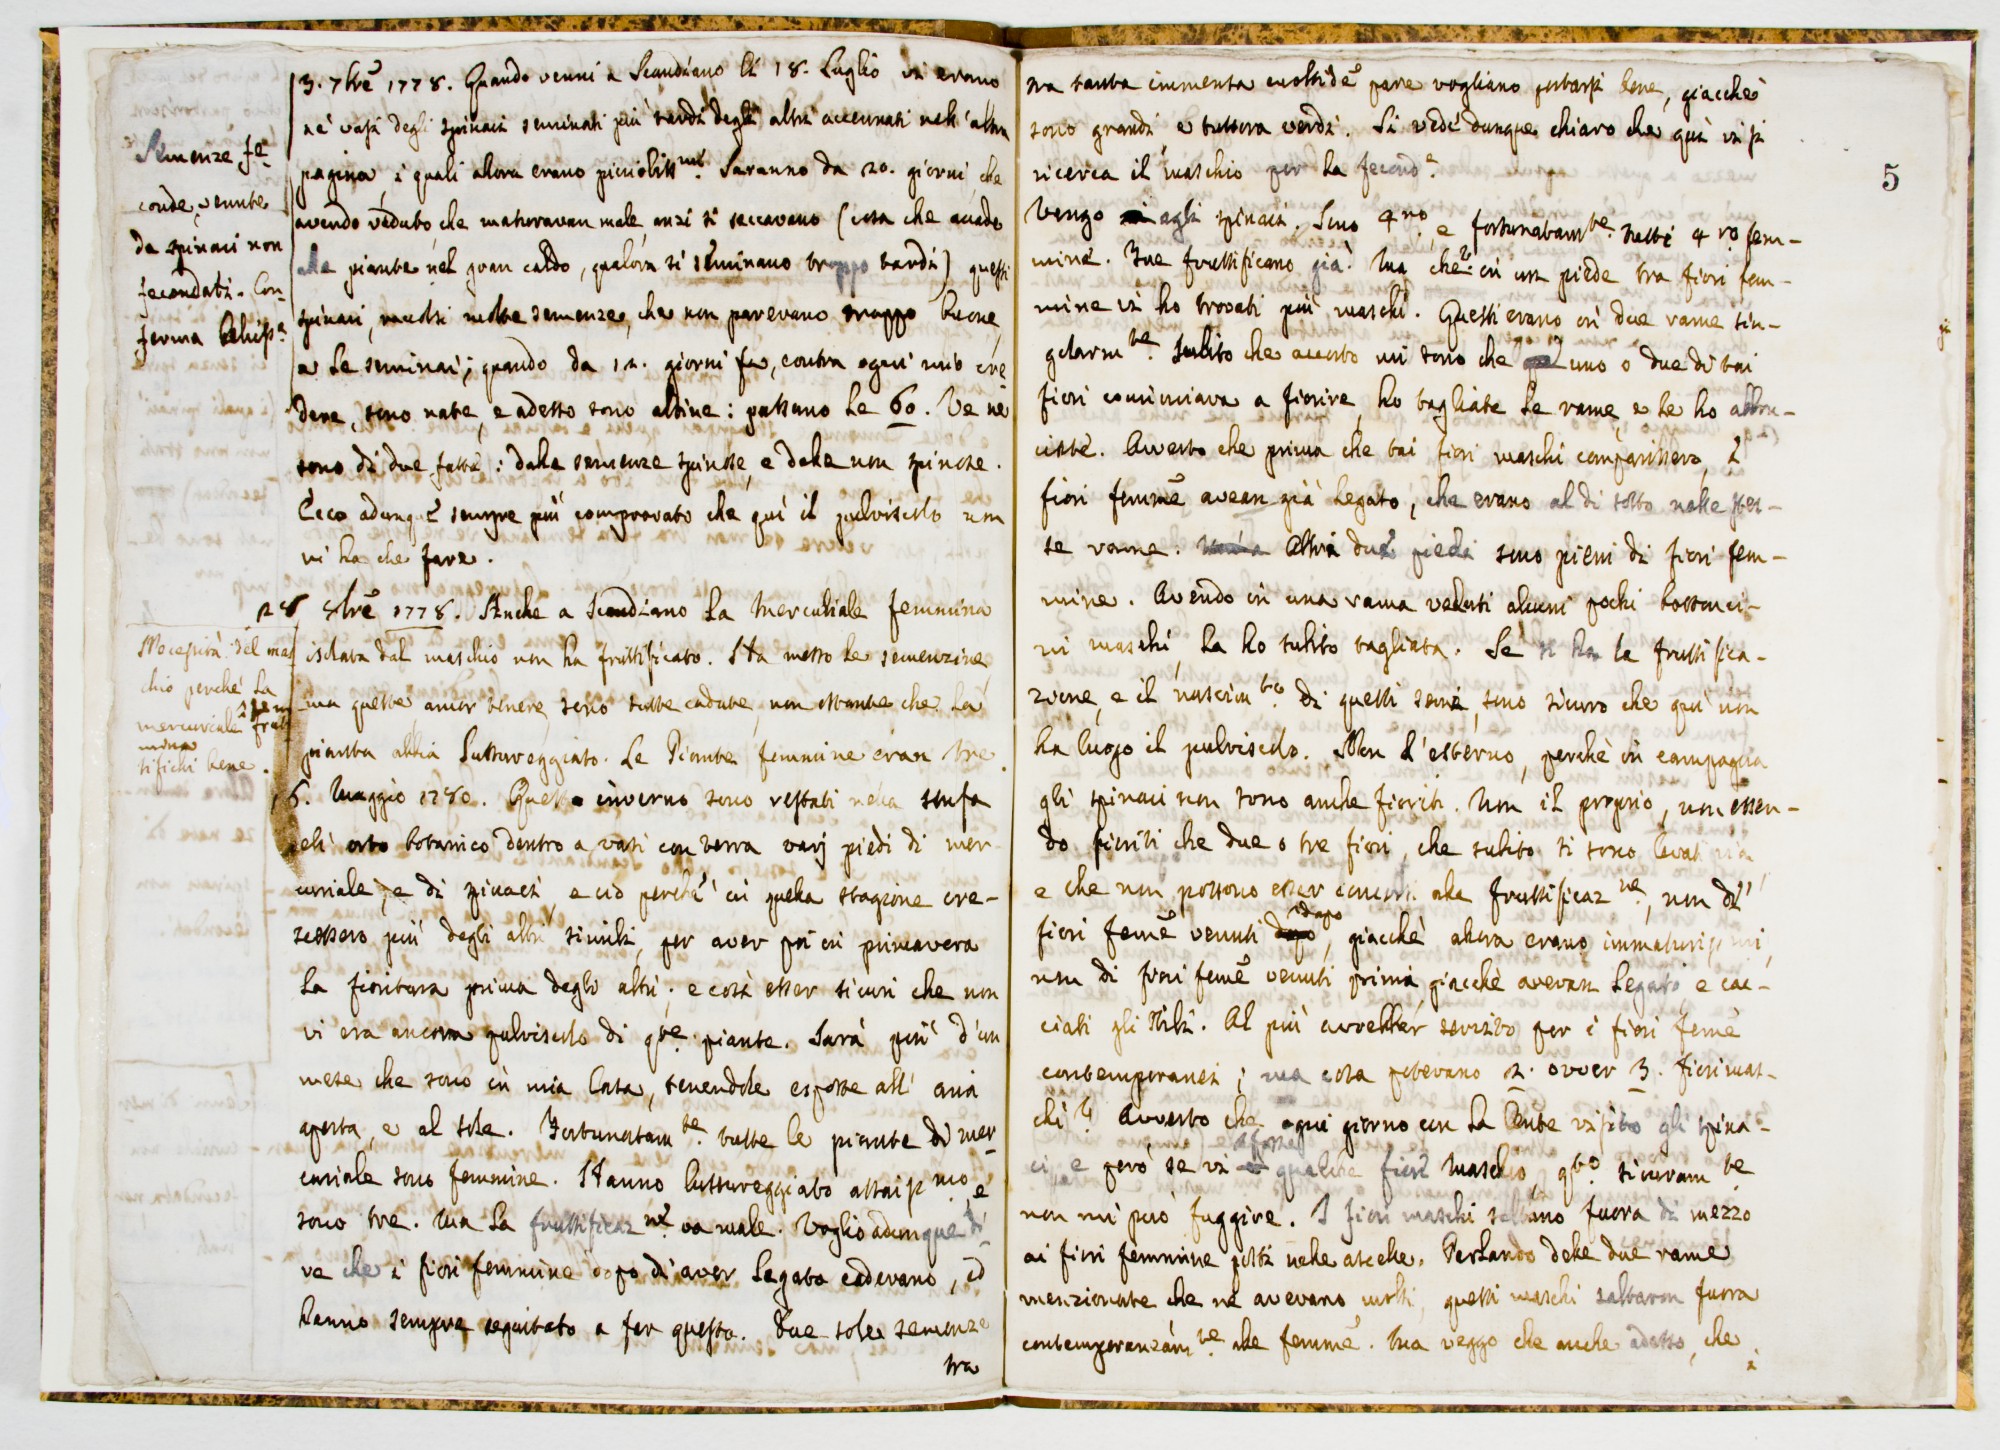 3. 7bre 1778. Quando venni a Scandiano li 18. Luglio vi erano
ne' vasi degli spinaci seminati più tardi degli altri accennati nell'altra
pagina, i quali allora erano picciolissmi. Saranno da 20. giorni, che
avendo veduto che maturavan male, anzi si seccavano (cosa che accade
alle piante nel gran caldo, qualora si seminano troppo tardi) questi
spinaci, raccolsi molte semenze, che non parevano troppo buone,
e le seminai; quando da 12. giorni fa, contra ogni mio cre
dere, sono nate, e adesso sono altine: passano le 60. Ve ne
sono di due fatte: dalle semenze spinose, e dalle non spinose.
Ecco adunque sempre più comprovato che qui il pulviscolo non
vi ha che fare.
Semenze fe-
conde, venute
da spinaci non
fecondati. Con-
ferma bellissa.
28 8bre 1778. Anche a Scandiano la Mercuriale femmina
isolata dal maschio non ha fruttificato. Ha messo le semenzine,
ma queste, ancor tenere, sono tutte cadute, non ostante che la
pianta abbia lussureggiato. Le Piante femmine eran tre.
Necessità del mas
chio perchè la
mercuriale fem
mina frut
tifichi bene.
6. Maggio 1780. Questo inverno sono restati nella stufa
dell' orto botanico dentro a vasi con terra varj piedi di mer-
curiale, e di spinaci, e ciò perchè in quella stagione cre-
scessero più degli altri simili, per aver poi in primavera
la fioritura prima degli altri; e così esser sicuri che non
vi era ancora pulviscolo di qte piante. Sarà più d'un
mese che sono in mia Casa, tenendole esposte all' aria
aperta, e al sole. Fortunatamte. tutte le piante di mer-
curiale sono femmine. Hanno lussureggiato assaipmo, e
sono tre. Ma la fruttificazne. va male. Voglio adunque di-
re che i fiori femmine dopo di aver legato cadevano, ed
hanno sempre seguitato a far questo. Due sole semenze
tra
5
tra tanta immensa moltide pare vogliano portarsi bene, giacchè
sono grandi e tuttora verdi. Si vede dunque chiaro che qui vi si
ricerca il maschio per la fecondne.
Vengo agli spinaci. Sono 4ro, e fortunatamte. tutti 4ro fem-
mine. Due fruttificano già. Ma che? in un piede tra fiori fem-
mine vi ho trovati più maschi. Questi erano in due rame sin-
golarmte. Subito che accorto mi sono che uno o due di tai
fiori cominciava a fiorire, ho tagliate le rame e le ho abbru-
ciate. Avverto che prima che tai fiori maschi comparissero, i
fiori femme avean già legato, che erano al di sotto nelle stes-
se rame. Altri due piedi sono pieni di fiori fem-
mine. Avendo in una rama veduti alcuni pochi bottonci-
ni maschi, la ho subito tagliata. Se si ha la fruttifica-
zione, e il nascimto. di questi semi, sono sicuro che qui non
ha luogo il pulviscolo. Non l'esterno, perchè in campagna
gli spinaci non sono anche fioriti. Non il proprio, non essen-
do fioriti che due o tre fiori, che subito si sono levati via
e che non possono esser concorsi alla fruttificazne, non di'
fiori feme venuti dopo, giacchè allora erano immaturi
non di fiori feme venuti prima, giacchè avevan legato, e cac-
ciati gli stili. Al più avrebber servito per i fiori feme
contemporanei; ma cosa potevano 2. ovver 3. fiori mas-
chi? Avverto che ogni giorno con la lente visito gli spina-
ci e però se vi fosse qualche fiore maschio, qto. sicuramte
non mi può fuggire. I fiori maschi saltano fuora di mezzo
ai fiori femmine posti nelle ascelle. Parlando delle due rame
menzionate che ne avevano molti, questi maschi saltaron fuora
contemporaneamte alle femme. Ma veggo che anche adesso, che